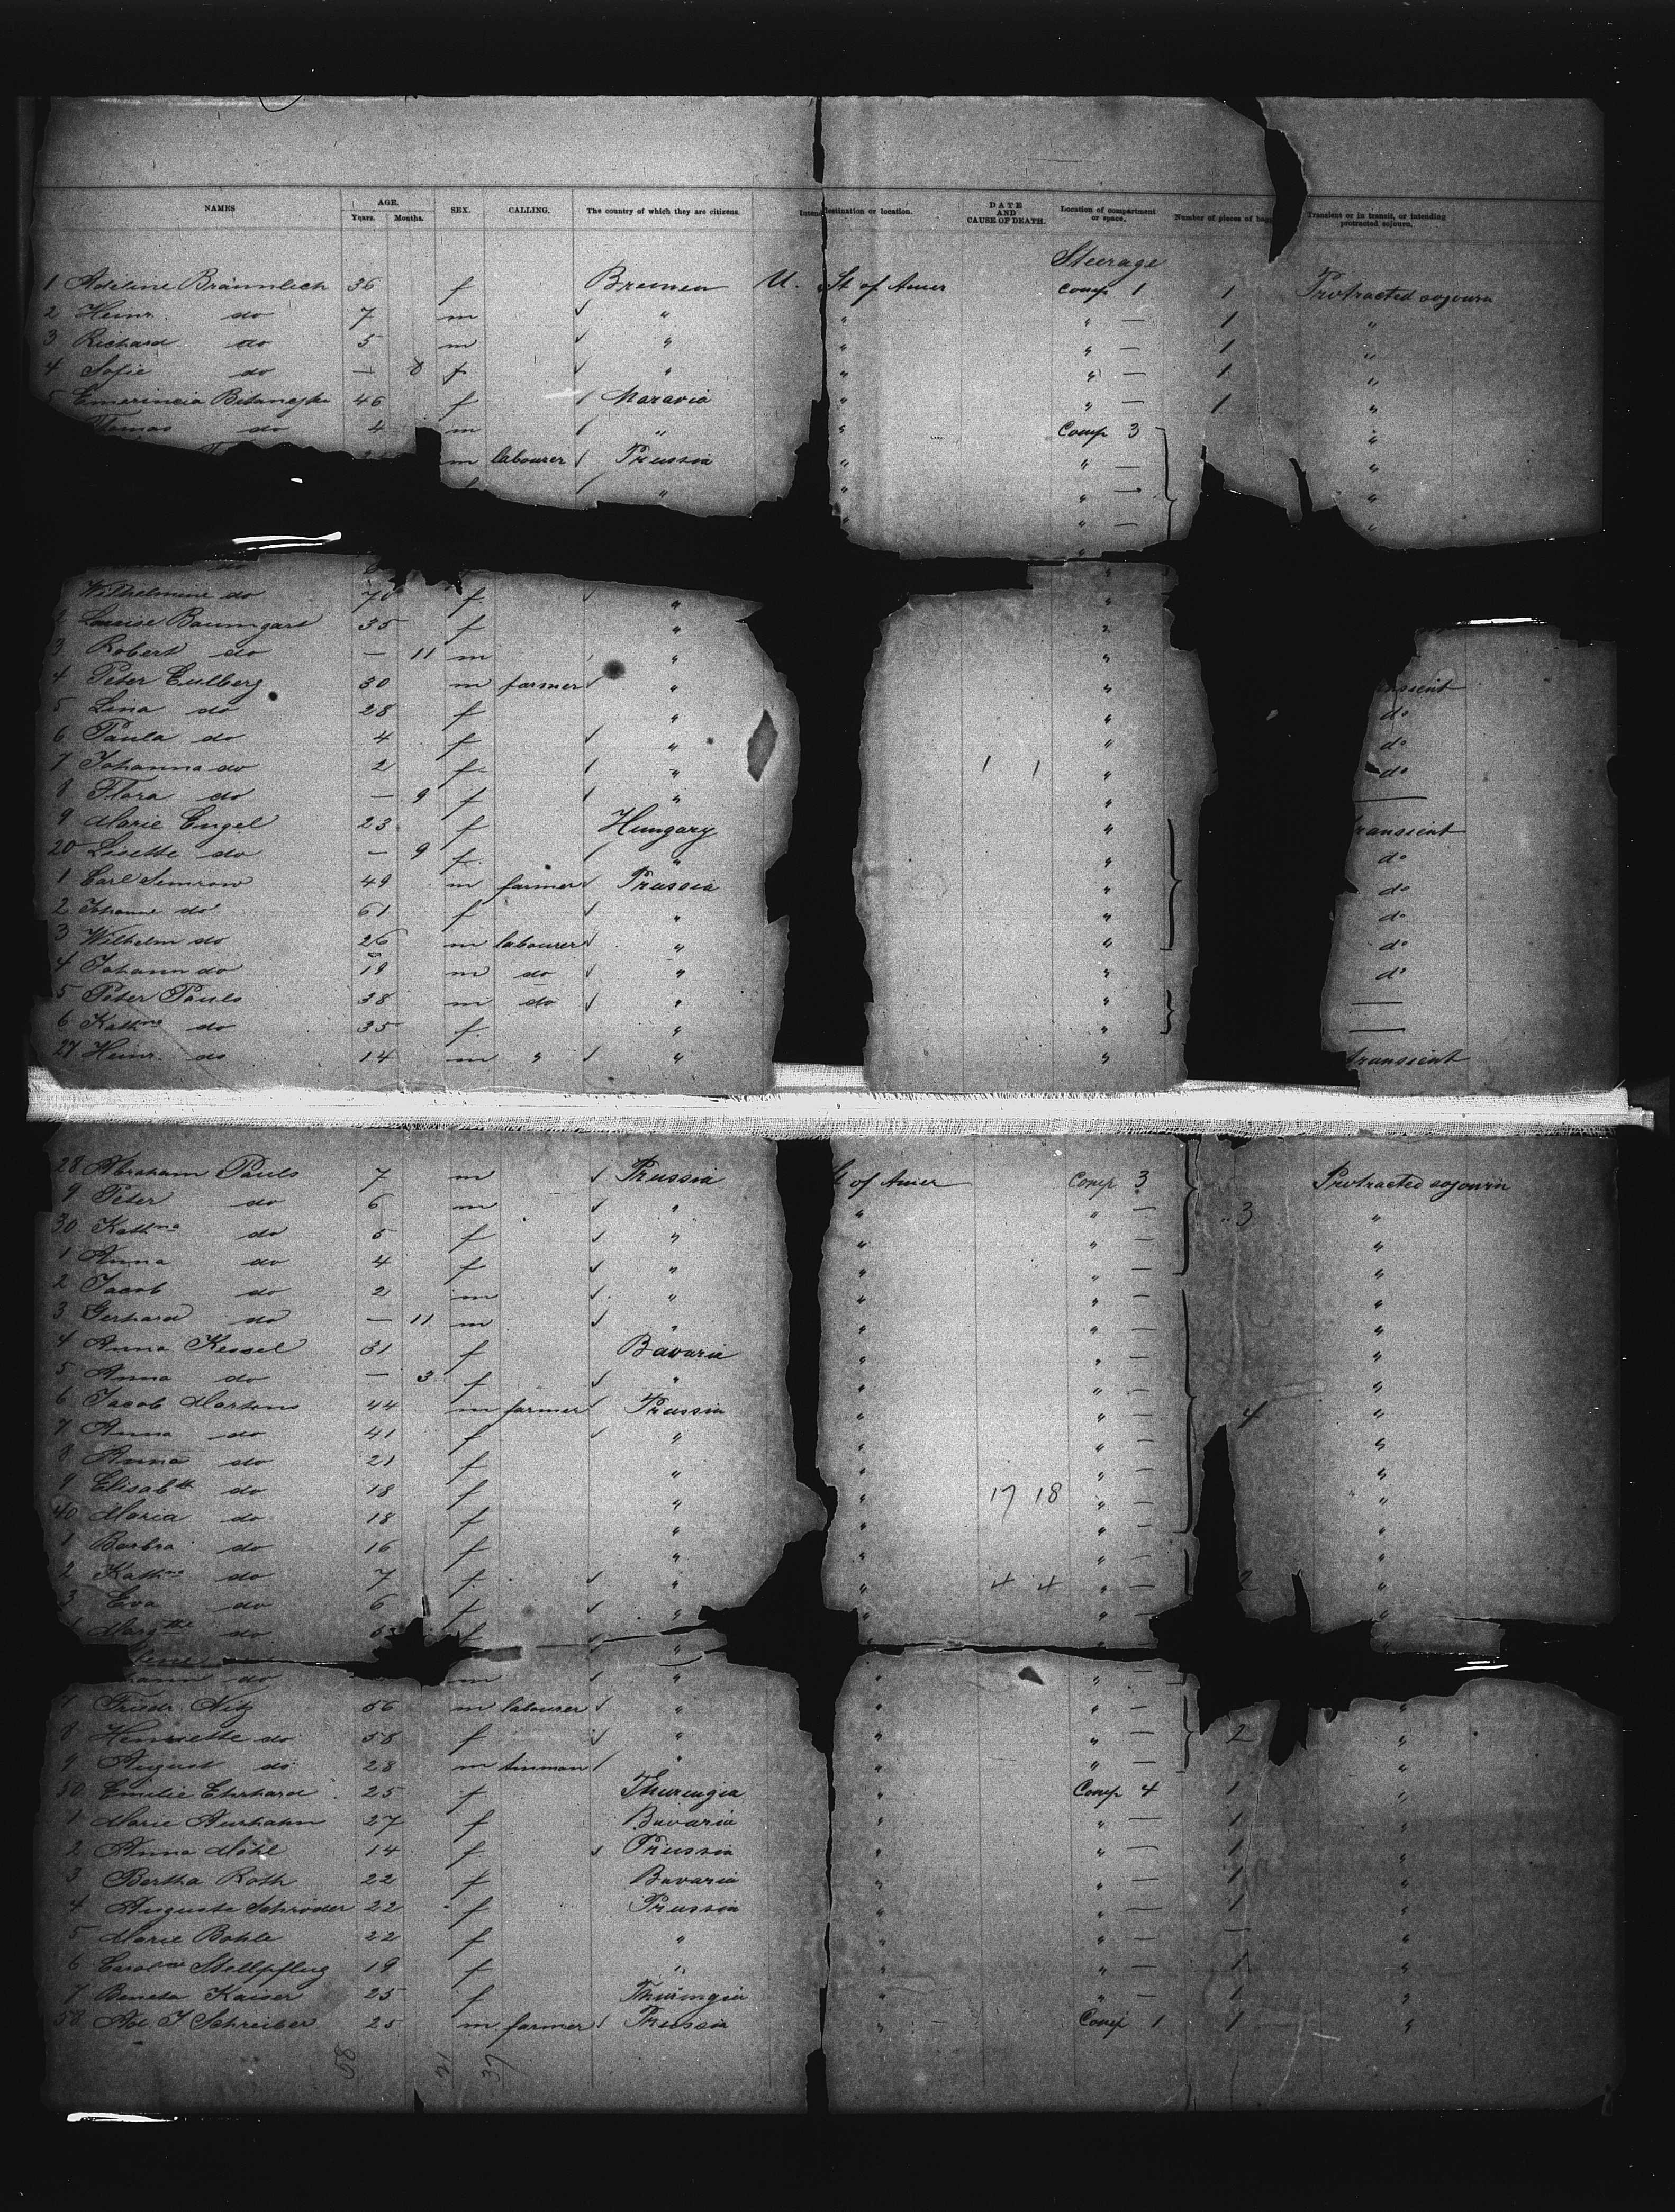 NAMES AGE. Years. Months. SEX. CALLING. The country of which they are citizens. Intend destination or location. DATE AND CAUSE OF DEATH. Location of compartment or space. Number of pieces of bagg Transient or in transit, or intending protracted sojourn.
Steerage
1 Adeline Bräunlich 36 f Bremen U. St of Amer Comp 1 1 Protracted sojourn
2 Heinr. do 7 m ✓ " " " — 1 "
3 Richard do 5 m ✓ " " " — 1 "
4 Sofie do — 8 f ✓ " " " — 1 "
5 Emerincia 46 f / Maravia " " — 1 "
Tomas do 4 m / " " Comp 3 "
m labourer / Prussia " " — "
/ " " " — "
" " — "
do "
Wilhelmine do 70 f. ✓ " "
2 Louise Baumgart 35 f " "
3 Robert do — 11 m " "
4 Peter Eulberg 30 m farmer ✓ " " ansient
5 Lina do 28 f " " do
6 Paula do 4 f ✓ " " do
7 Johanna do 2 f / " 1 1 " do
8 Flora do — 9 f / " " —
9 Marie Engel 23 f Hungary " transient
20 Lisette do — 9 f ✓ " " do
1 Carl Simrow 49 m farmer ✓ Prussia " do
2 Johanne do 61 f ✓ " " do
3 Wilhelm do 26 m labourer ✓ " " do
4 Johann do 19 m do ✓ " " do
5 Peter Pauls 38 m do ✓ " " —
6 Kathna do 35 f. " " —
27 Heinr. do 14 m " ✓ " " transient
28 Abraham Pauls 7 m ✓ Prussia St of Amer Comp 3 Protracted sojourn
9 Peter do 6 m ✓ " " " — 3 "
30 Kathna do 5 f ✓ " " " — "
1 Anna do 4 f ✓ " " " — "
2 Jacob do 2 m ✓ " " " — "
3 Gerhard do — 11 m ✓ " " " — "
4 Anna Kessel 31 f Bavaria " " — "
5 Anna do — 3 f ✓ " " " — "
6 Jacob Martens 44 m farmer ✓ Prussia " " — 4 "
7 Anna do 41 f ✓ " " " — "
8 Anna do 21 f " " " — "
9 Elisabth do 18 f " " 17 18 " — "
40 Maria do 18 f " " " — "
1 Barbra do 16 f " " " — "
2 Kathna do 7 f. ✓ " " 4 4 " — 2 "
3 Eva do 6 f ✓ " " " — "
do f ✓ " " "
hann do m / " " " —
7 Friedr. Nitz 56 m labourer ✓ " " " — "
8 Henriette do 58 f ✓ " " " — 2 "
9 August do 28 m tinman / " " " — "
50 Emilie Ehrhard 25 f Thuringia " Comp 4 1 "
1 Marie Aurhahn 27 f Bavaria " " — 1 "
2 Anna Möhl 14 f ✓ Prussia " " — 1 "
3 Bertha Roth 22 f Bavaria " " — 1 "
4 Auguste Schröder 22 f Prussia " " — 1 "
5 Marie Bohle 22 f " " " — — "
6 Carolne Stellpflug 19 f " " " — 1 "
7 Beneta Kaiser 25 f Thuringia " " — 1 "
58 Ad. J. Schreiber 25 m farmer / Prussia " Comp 1 1 "
58 21 37